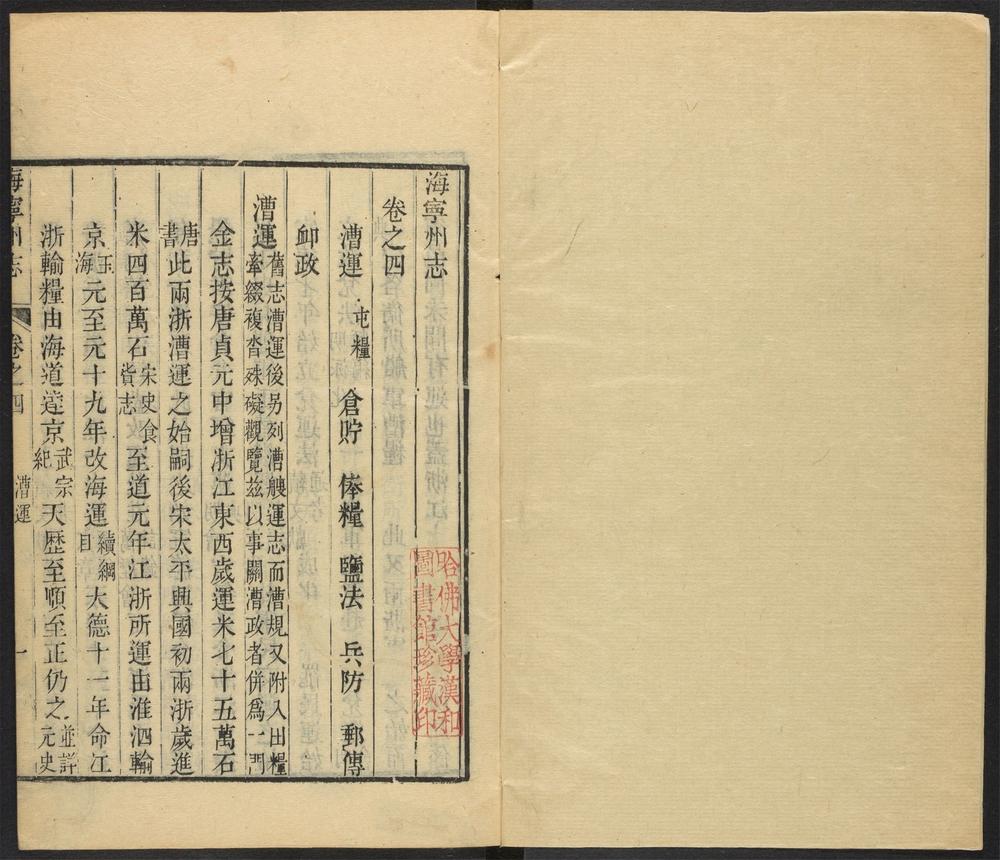 海寧州志
卷之四
漕運 屯糧 倉貯 俸糧 鹽法 兵防 郵傳
卹政
漕運 舊志漕運後另列漕艘運志而漕規又附入田糧
牽綴複沓殊礙觀覽茲以事關漕政者併爲一門
金志按唐貞元中增浙江東西歲運米七十五萬石
唐書此兩浙漕運之始嗣後宋太平興國初兩浙歲進
米四百萬石宋史食貨志至道元年江浙所運由淮泗輸
京玉海元至元十九年改海運續綱目大德十一年命江
浙輸糧由海道達京武宗紀天歷至順至正仍之並詳元史
海寧州志 卷之四 漕運 一
哈佛大學漢和
圖書館珍藏印